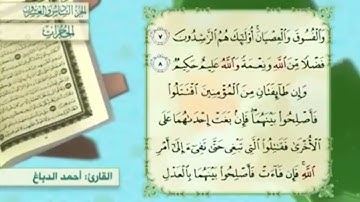 الجزء السادس والعشرون
الحجرات
وَالْفُسُوقَ وَالْعِصْيَانَ أُوْلَٰٓئِكَ هُمُ الرَّٰشِدُونَ ٧
فَضْلًا مِّنَ اللَّهِ وَنِعْمَةً وَاللَّهُ عَلِيمٌ حَكِيمٌ ٨
وَإِن طَآئِفَتَانِ مِنَ الْمُؤْمِنِينَ اقْتَتَلُوا
فَأَصْلِحُوا بَيْنَهُمَا فَإِنۢ بَغَتْ إِحْدَىٰهُمَا عَلَى
الْأُخْرَىٰ فَقَٰتِلُوا الَّتِي تَبْغِي حَتَّىٰ تَفِيٓءَ إِلَىٰٓ أَمْرِ
اللَّهِ فَإِن فَآءَتْ فَأَصْلِحُوا بَيْنَهُمَا بِالْعَدْلِ
القارئ: أحمد الدباغ